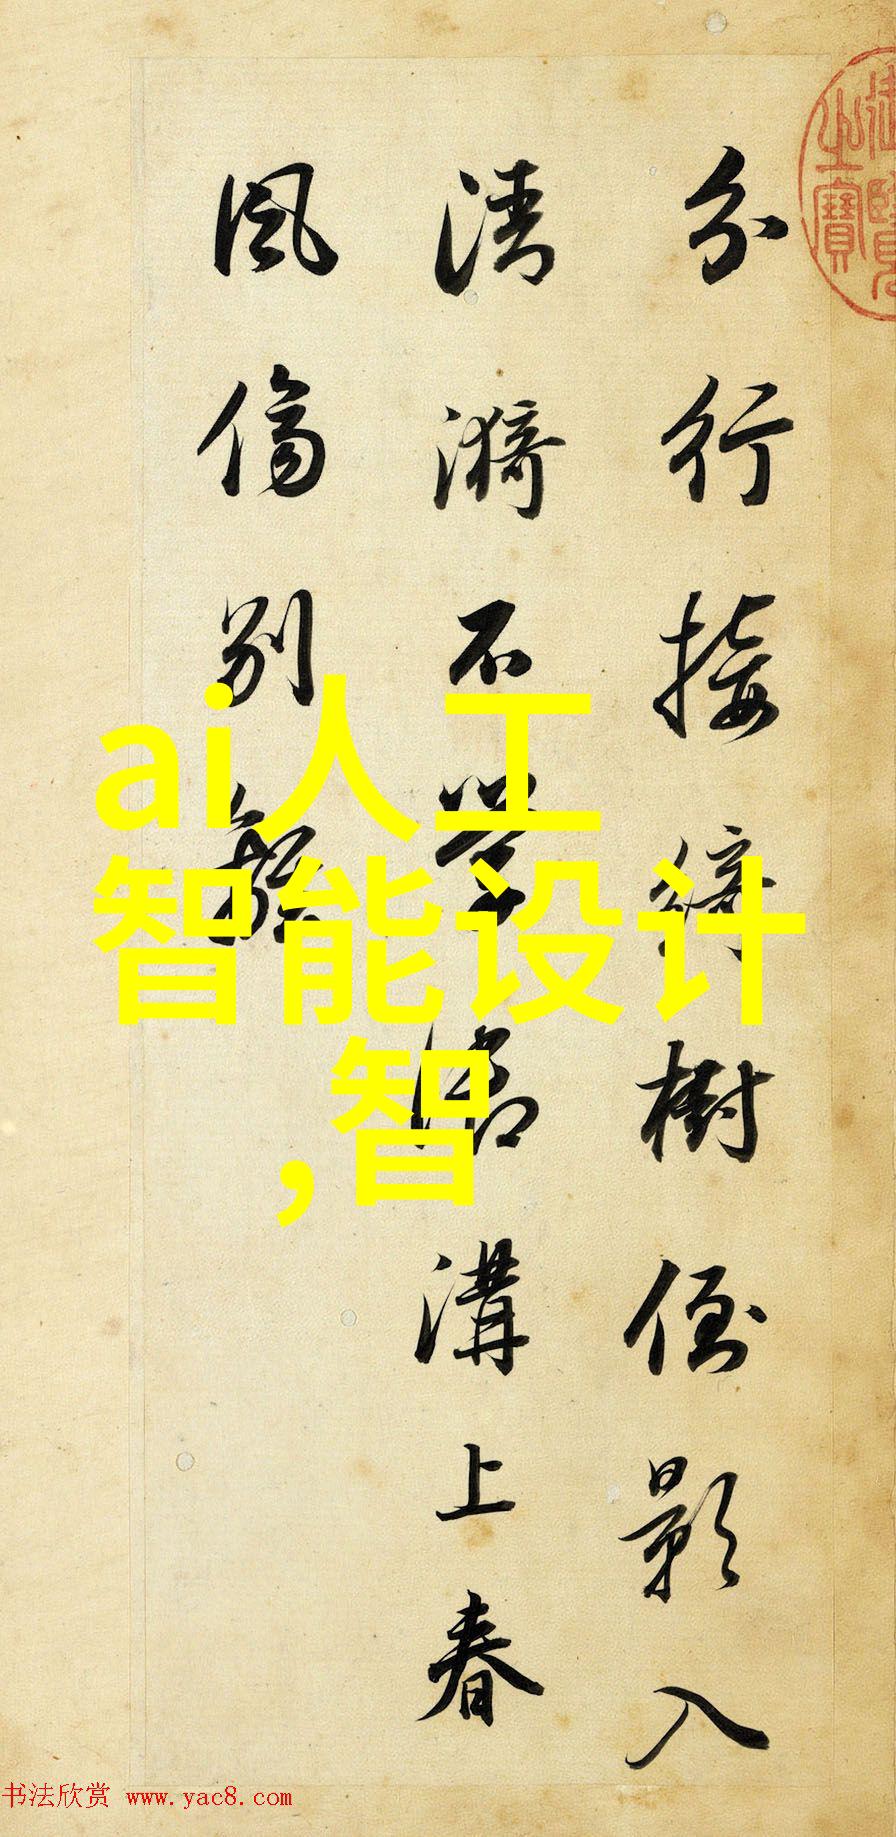 分行接綺樹倒影入
清漪不學御溝上春
風傷別離
ai人工
智能设计
,智
书法欣赏 www.yac8.com